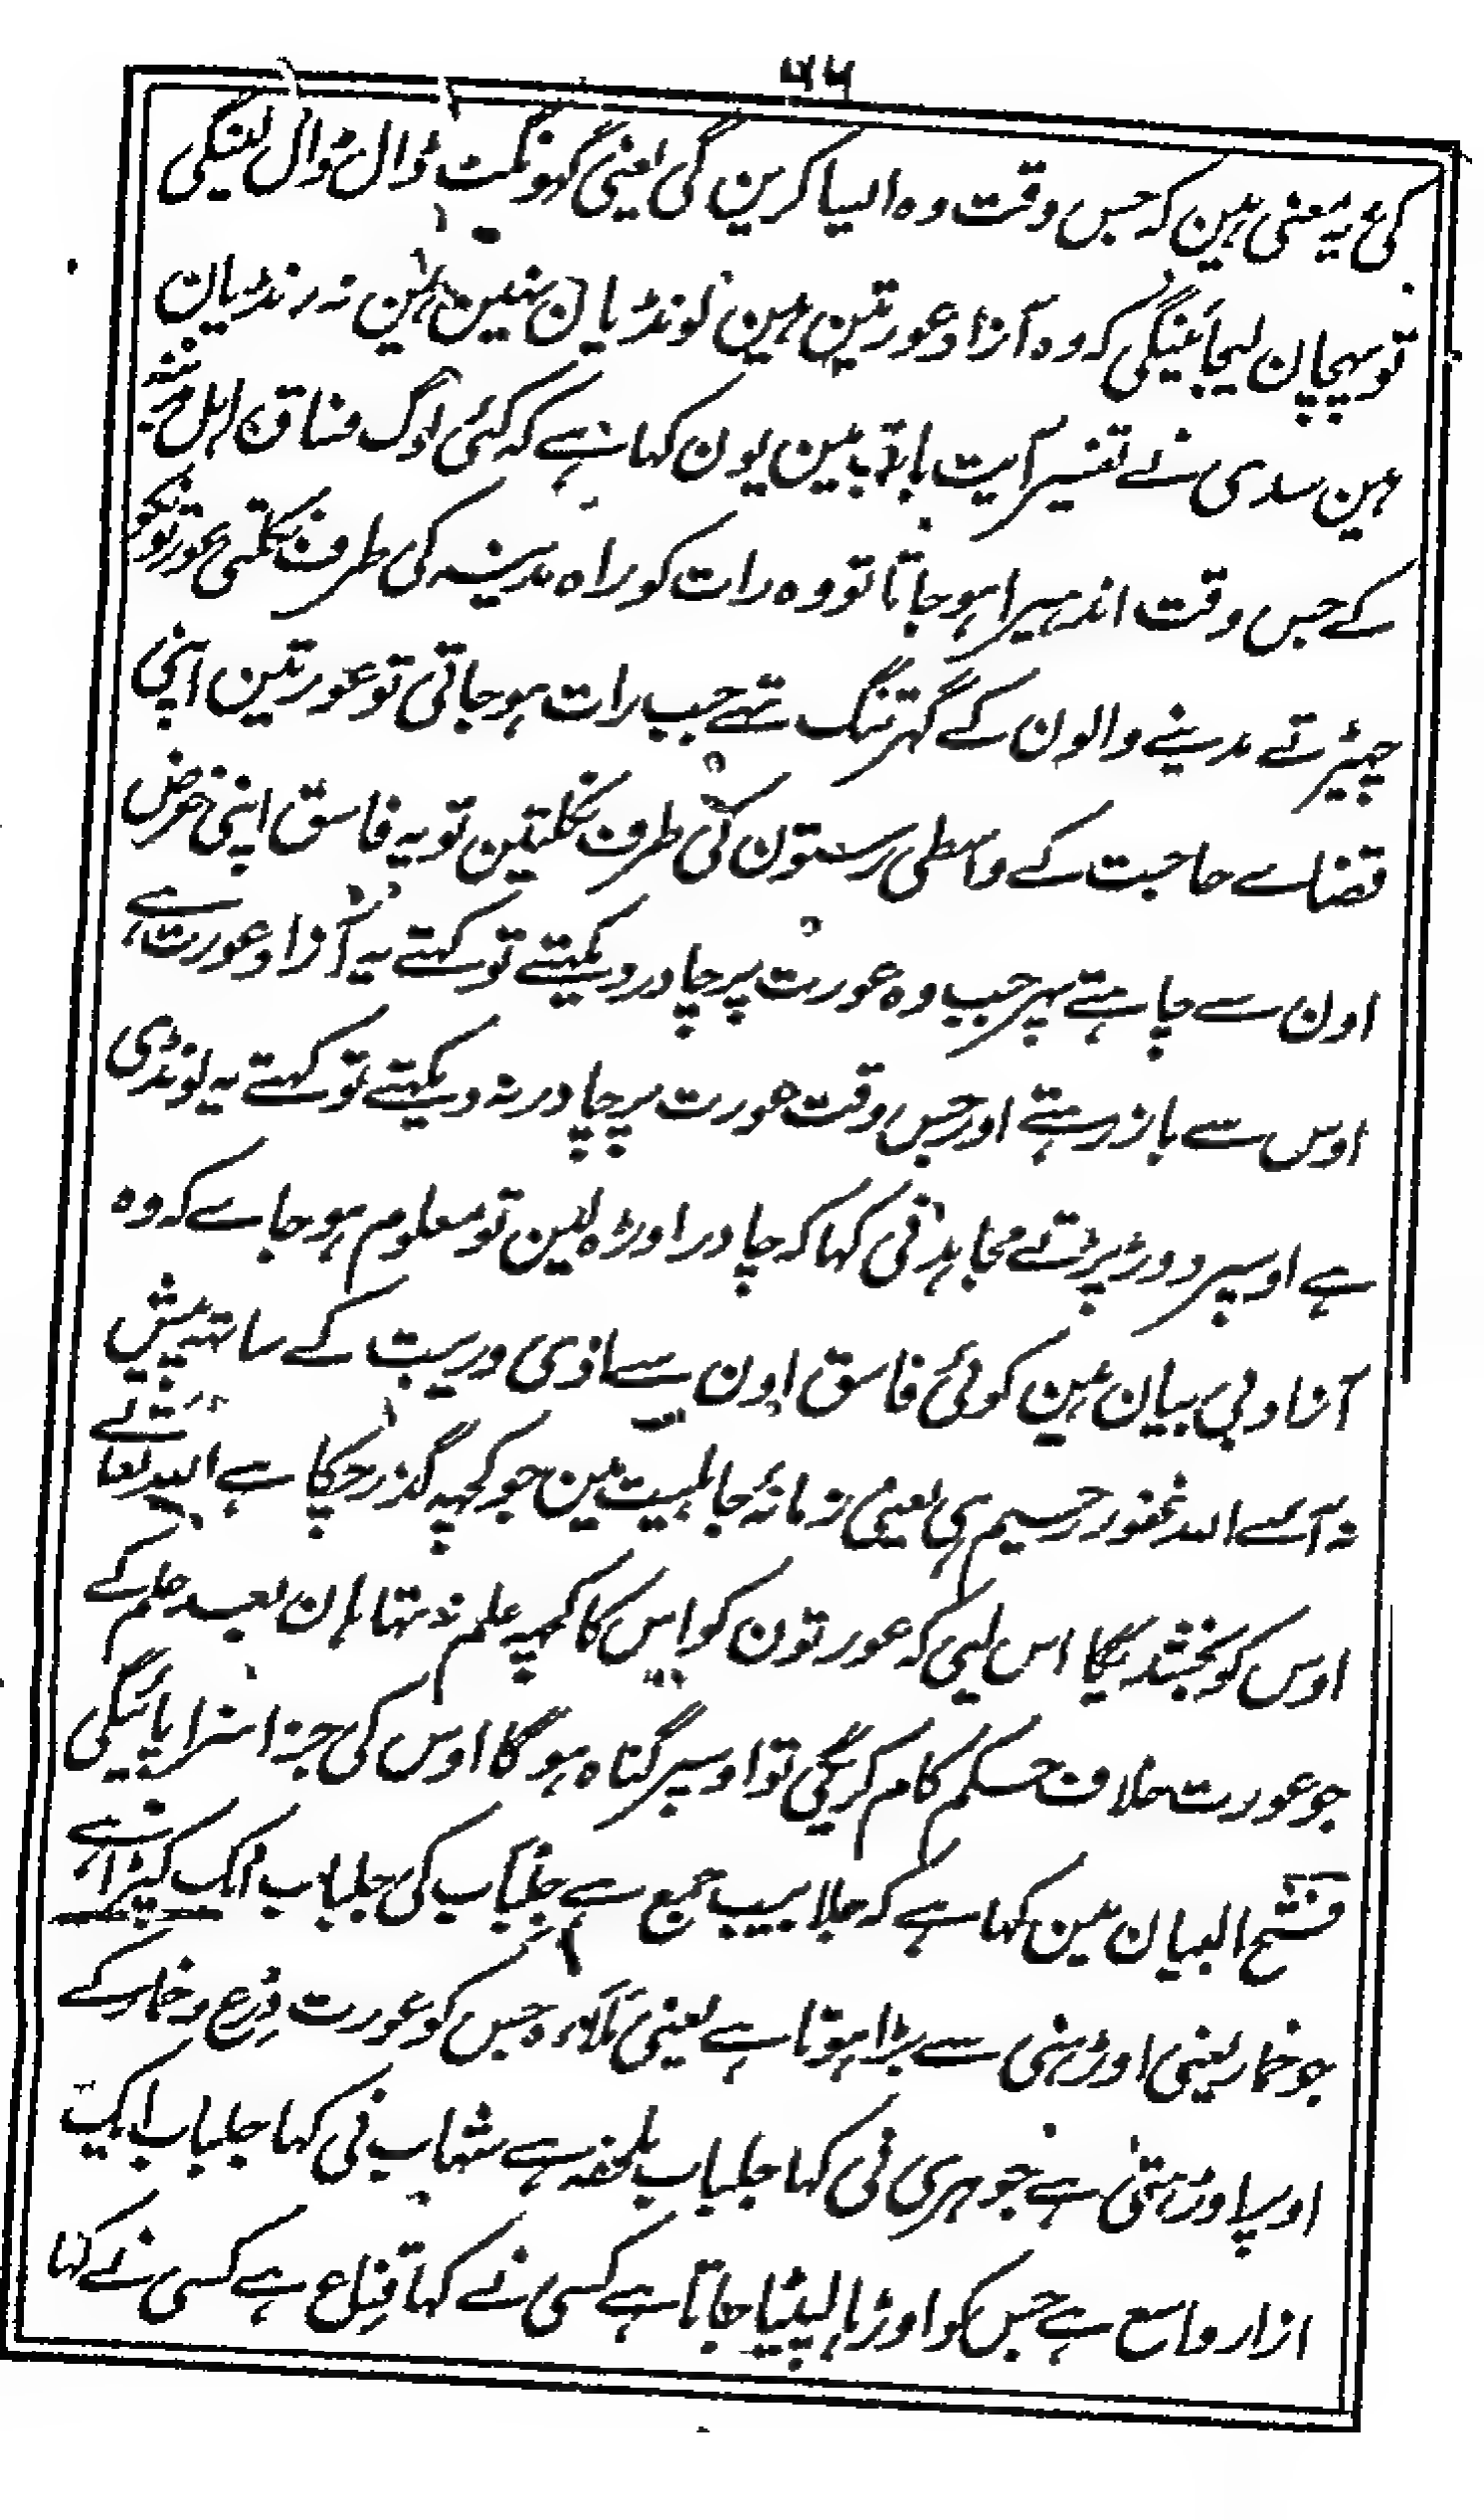 ۵۶۵
کی یہ معنی ہین کہ جس وقت وہ ایسا کرین گی یعنی گہونگٹ ڈال ڈوال لینگی
تو پہچان لیجائینگی کہ وہ آزاد عورتین ہین لونڈیان نہین ہین نہ رنڈیان
ہین سدی نے تفسیر آیت باب مین یون کہا ہے کہ کئی لوگ فساق اہل مدینہ
کے جس وقت اندہیرا ہو جاتا تو وہ رات کو راہ مدینہ کی طرف نکلتے عورتونکو
چہیڑتے مدینے والون کے گہر تنگ تہے جب رات ہو جاتی تو عورتین اپنی
قضاے حاجت کے واسطی رستون کی طرف نکلتین تو یہ فاسق اپنی غرض
اون سے چاہتے پہر جب وہ عورت پر چادر دیکہتے تو کہتے یہ آزاد عورت ہے
اوس سے باز رہتے اور جس وقت عورت پر چادر نہ دیکہتے تو کہتے یہ لونڈی
ہے اوسپر دوڑ پڑتے مجاہد نی کہا کہ چادر اوڑہ لین تو معلوم ہو جاے کہ وہ
آزاد بی بیان ہین کوئی فاسق اون سے اذی وریبت کے ساتہہ پیش
نہ آے اللہ غفور رحیم ہی یعنی زمانۂ جاہلیت مین جو کچہہ گذر چکا ہے اللہ تعالٰے
اوس کو بخشدیگا اس لیی کہ عورتون کو اس کا کچہہ علم نہ تہا ہان بعد علم کے
جو عورت خلاف حکم کام کریگی تو اوسپر گناہ ہوگا اوس کی جزا سزا پائیگی
فتح البیان مین کہا ہے کہ جلابیب جمع ہے جلباب کی جلباب ایک کپڑا ہے
جو خمار یعنی اوڑہنی سے بڑا ہوتا ہے یعنی چادرہ جس کو عورت دِرع وخمار کے
اوپر اوڑہتی ہے جوہری نی کہا جلباب ملحفہ ہے شہاب نی کہا جلباب ایک
ازار واسع ہے جس کو اوڑہا لپیٹا جاتا ہے کسی نے کہا قِناع ہے کسی نے کہا